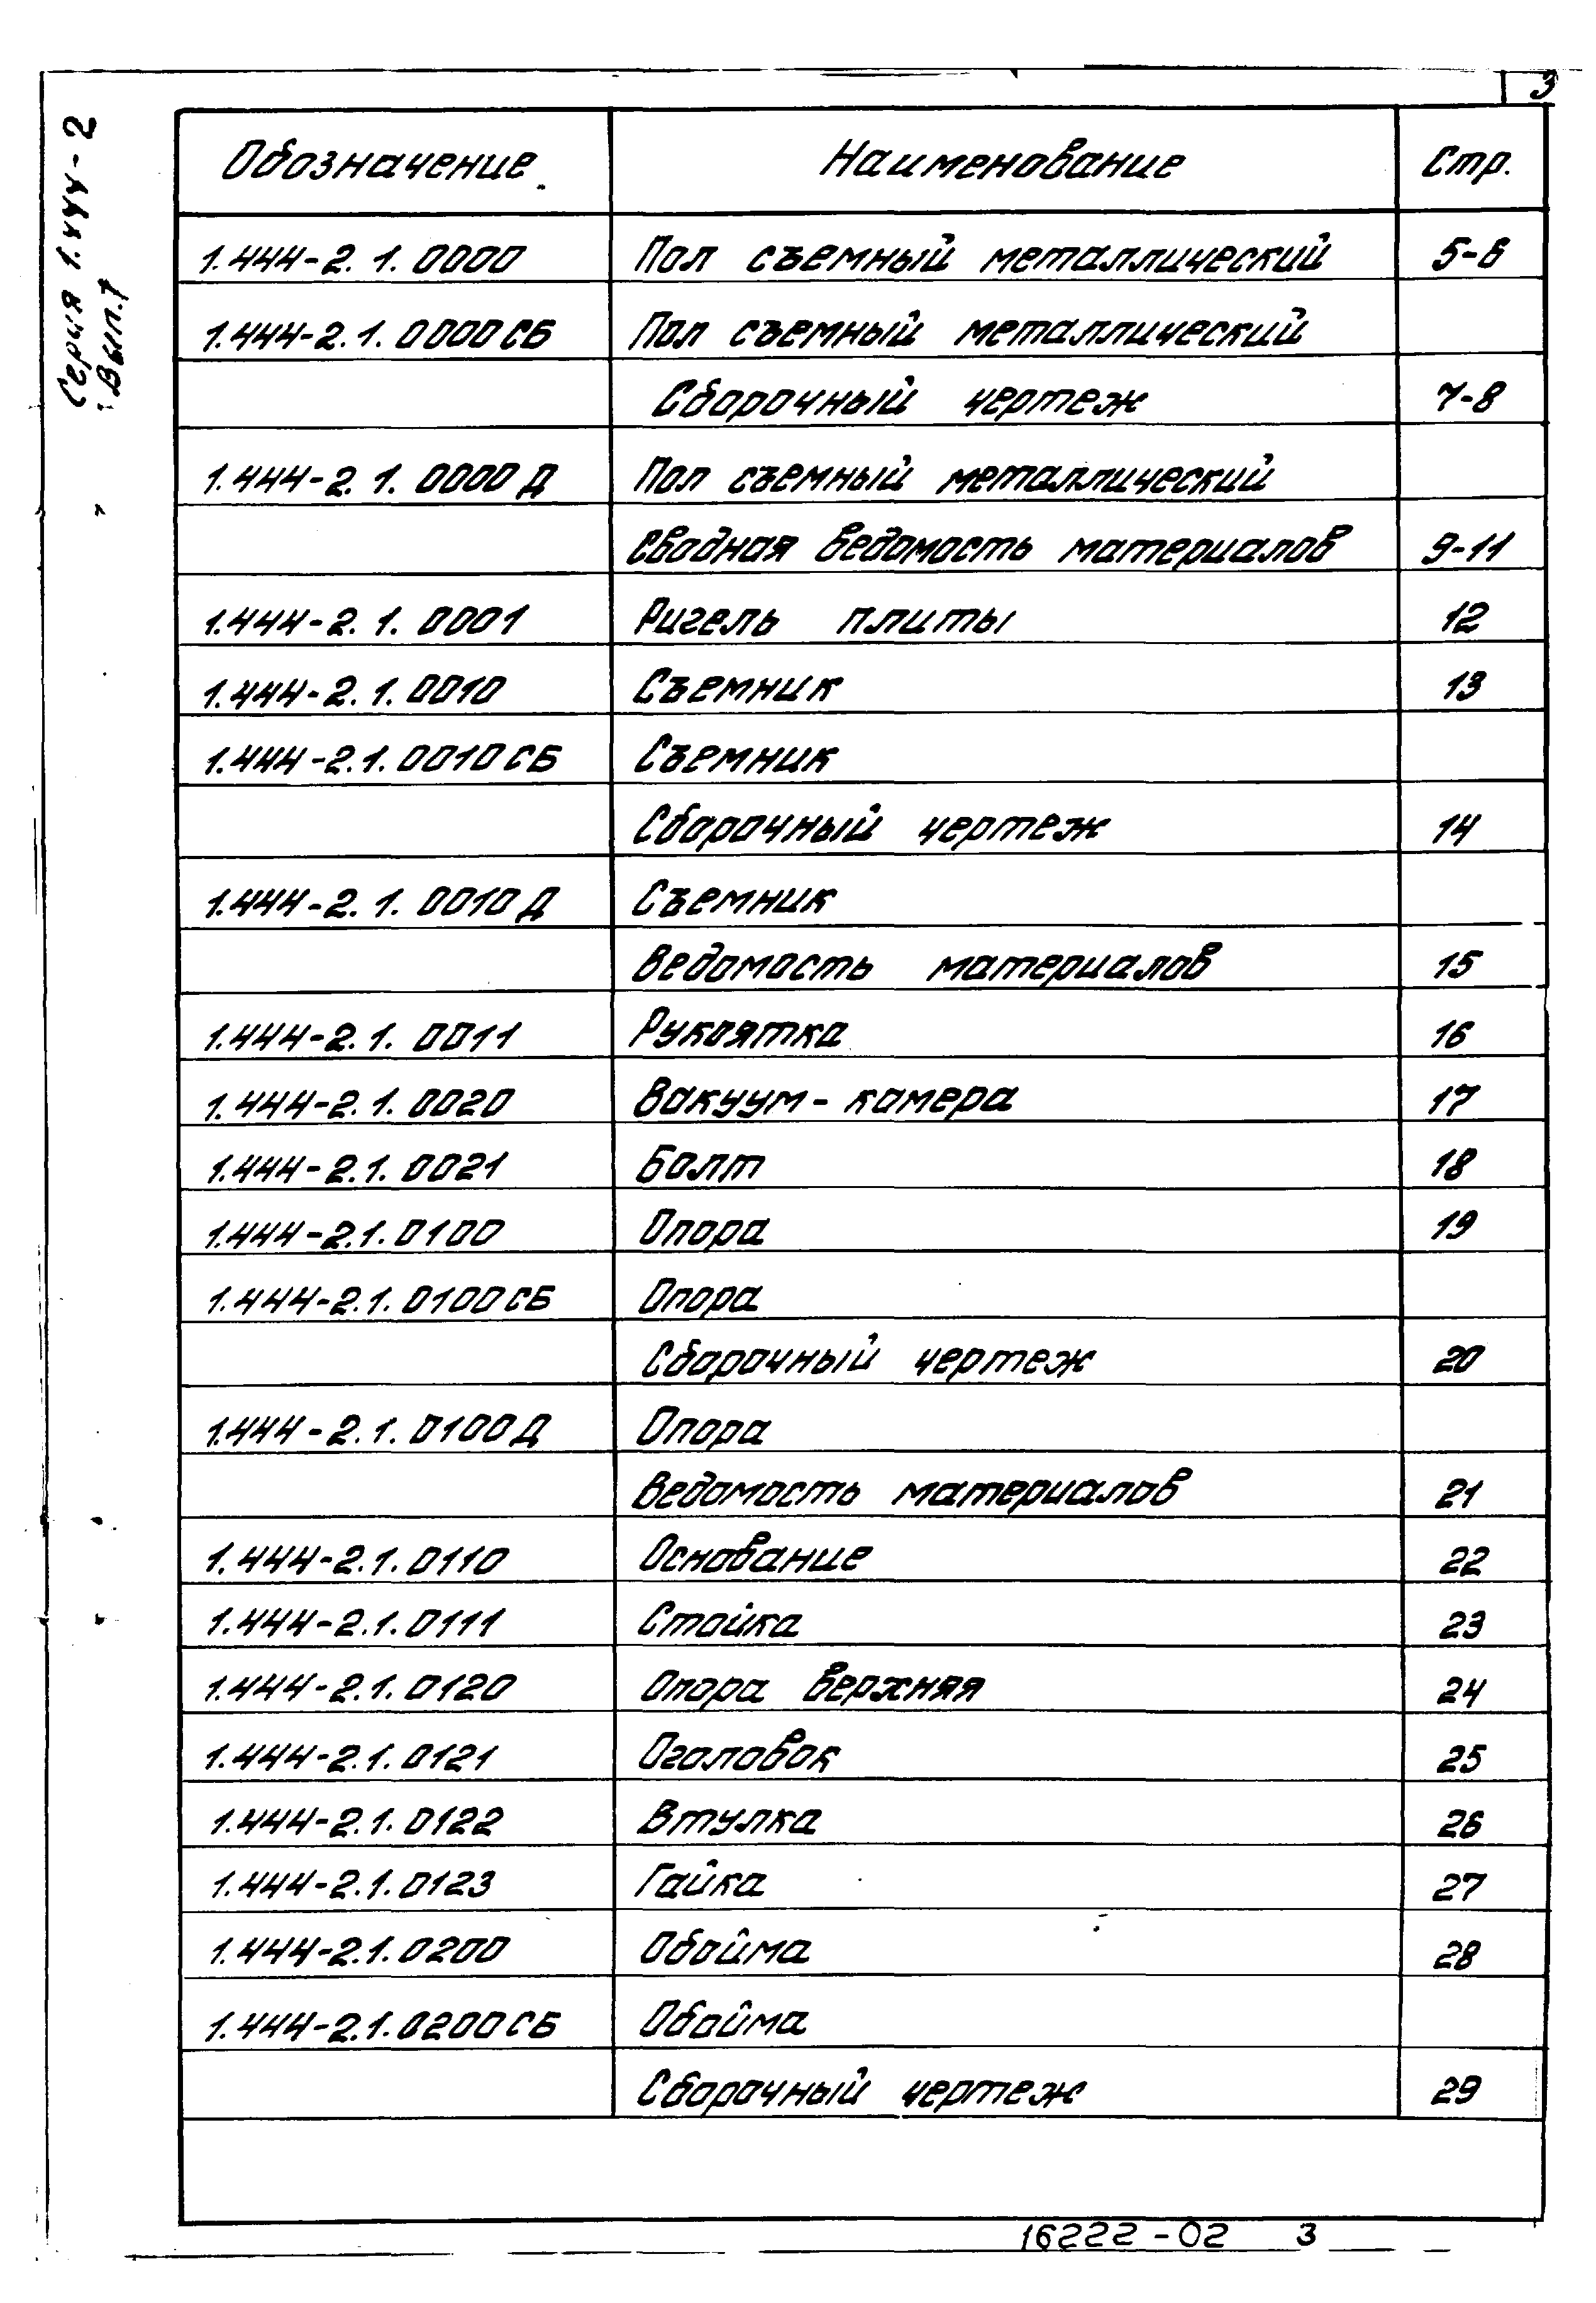 3
Серия 1.444-2
Вып.1
Обозначение Наименование Стр.
1.444-2.1.0000 Пол съемный металлический 5-6
1.444-2.1.0000СБ Пол съемный металлический
Сборочный чертеж 7-8
1.444-2.1.0000Д Пол съемный металлический
Сводная ведомость материалов 9-11
1.444-2.1.0001 Ригель плиты 12
1.444-2.1.0010 Съемник 13
1.444-2.1.0010СБ Съемник
Сборочный чертеж 14
1.444-2.1.0010Д Съемник
Ведомость материалов 15
1.444-2.1.0011 Рукоятка 16
1.444-2.1.0020 Вакуум-камера 17
1.444-2.1.0021 Болт 18
1.444-2.1.0100 Опора 19
1.444-2.1.0100СБ Опора
Сборочный чертеж 20
1.444-2.1.0100Д Опора
Ведомость материалов 21
1.444-2.1.0110 Основание 22
1.444-2.1.0111 Стойка 23
1.444-2.1.0120 Опора верхняя 24
1.444-2.1.0121 Оголовок 25
1.444-2.1.0122 Втулка 26
1.444-2.1.0123 Гайка 27
1.444-2.1.0200 Обойма 28
1.444-2.1.0200СБ Обойма
Сборочный чертеж 29
16222-02 3